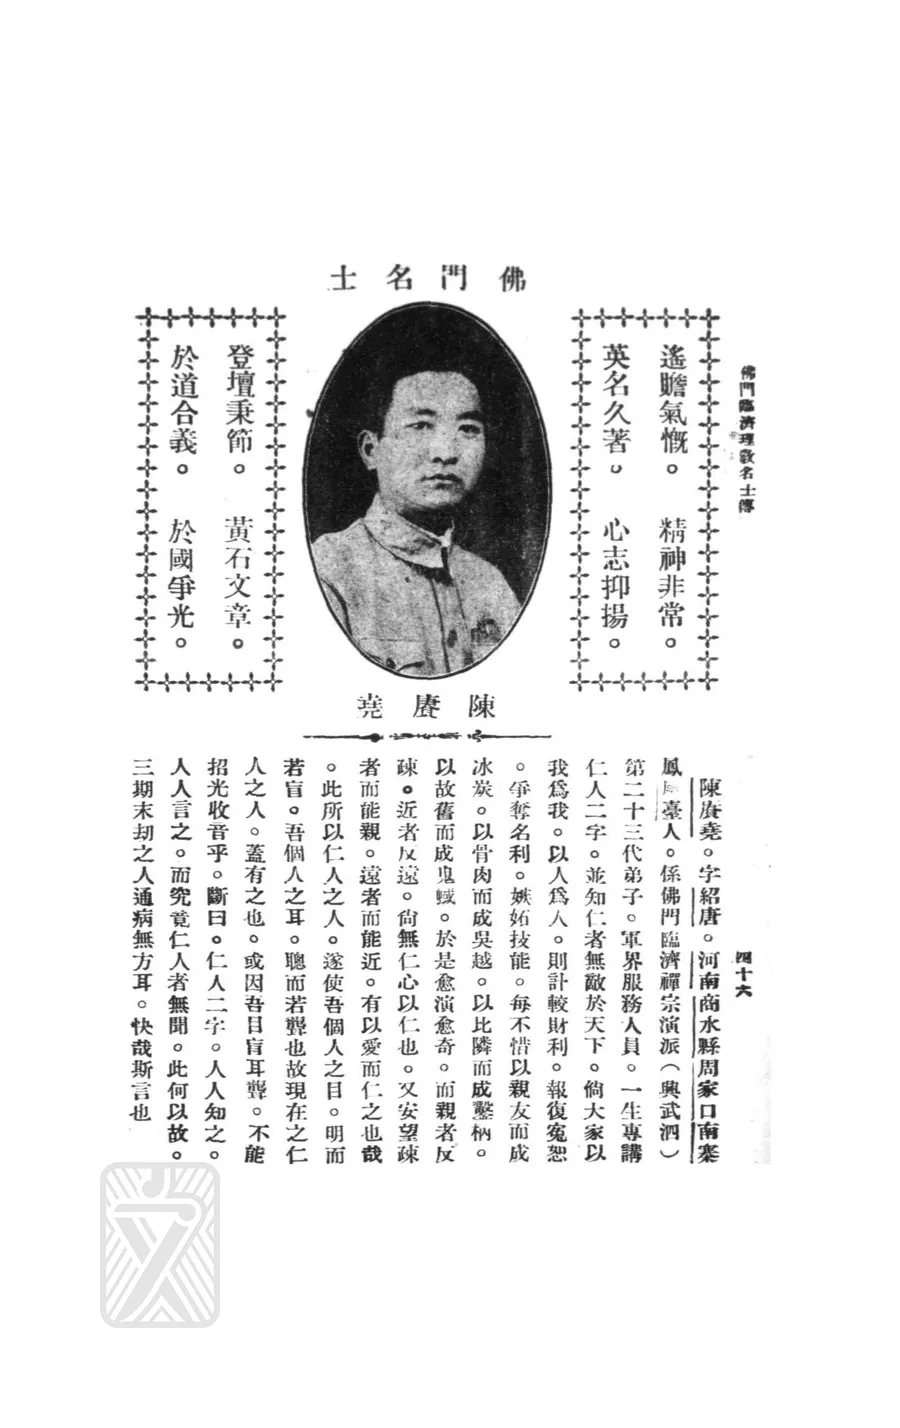 佛門臨濟理教名士傳
四十六
佛門名士
遙瞻氣慨。精神非常。
英名久著。心志抑揚。
登壇秉節。黃石文章。
於道合義。於國爭光。
陳賡堯
陳賡堯。字紹唐。河南商水縣周家口南寨
鳳臺人。係佛門臨濟禪宗演派（興武泗）
第二十三代弟子。軍界服務人員。一生專講
仁人二字。並知仁者無敵於天下。倘大家以
我爲我。以人爲人。則計較財利。報復寃恕
。爭奪名利。嫉妬技能。每不惜以親友而成
冰炭。以骨肉而成吳越。以比隣而成鑿枘。
以故舊而成鬼蜮。於是愈演愈奇。而親者反
疎。近者反遠。尙無仁心以仁也。又安望疎
者而能親。遠者而能近。有以愛而仁之也哉
。此所以仁人之人。遂使吾個人之目。明而
若盲。吾個人之耳。聰而若聾也故現在之仁
人之人。蓋有之也。或因吾目盲耳聾。不能
招光收音乎。斷曰。仁人二字。人人知之。
人人言之。而究竟仁人者無聞。此何以故。
三期末劫之人通病無方耳。快哉斯言也